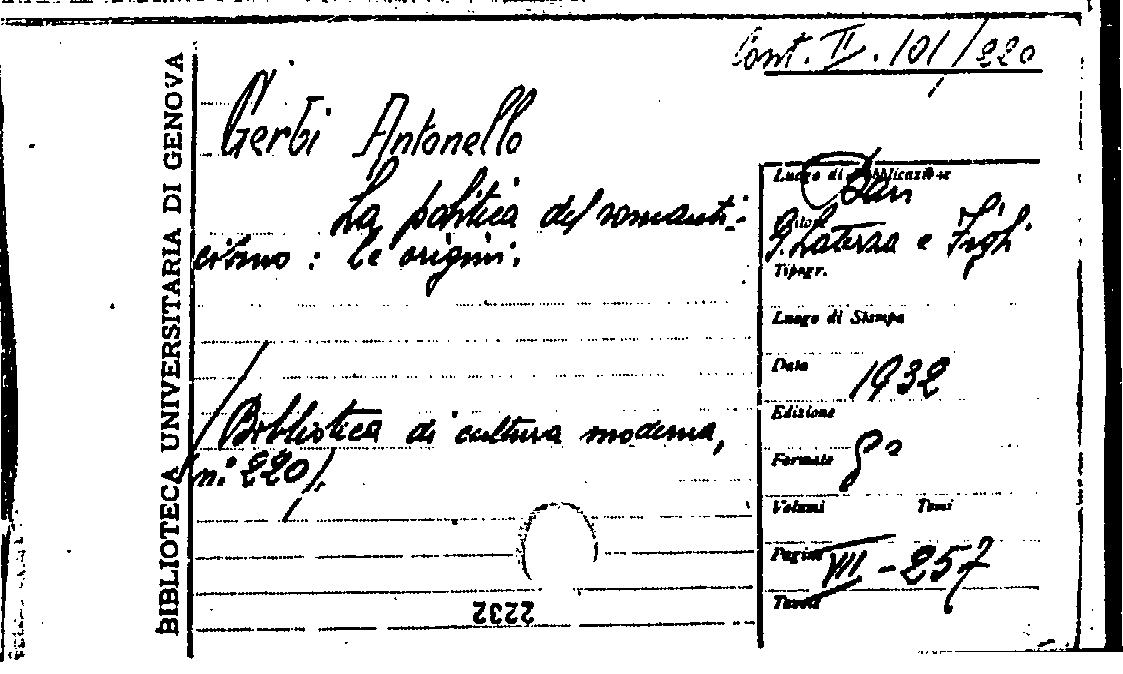 Cont. II. 101/220
BIBLIOTECA UNIVERSITARIA DI GENOVA
Gerbi Antonello
La politica del romanti-
cismo : le origini.
/Biblioteca di cultura moderna,
n.° 220/.
2232
Luogo di Pubblicazione
Bari
Editore
G. Laterza e Figli
Tipogr.
Luogo di Stampa
Data 1932
Edizione
Formato 8°
Volumi Tomi
Pagine VII-257
Tavole